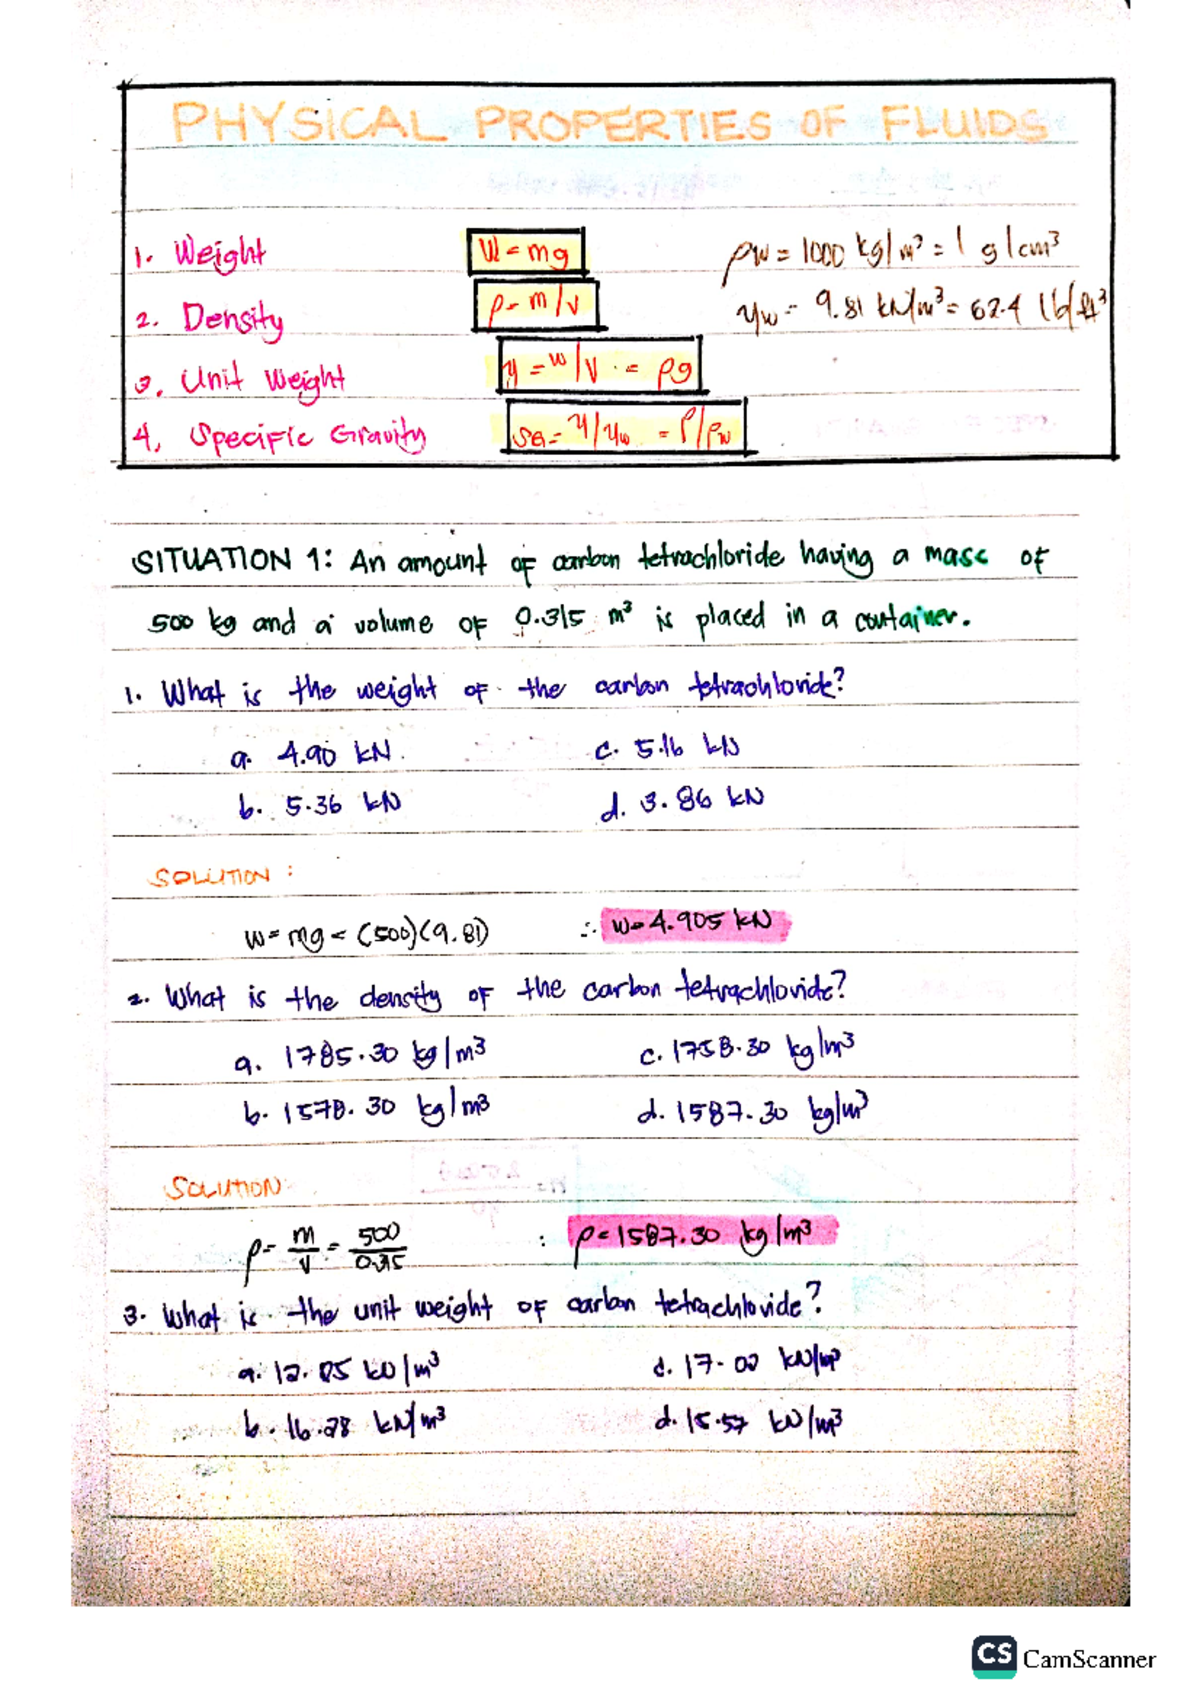 PHYSICAL PROPERTIES OF FLUIDS
1. Weight W = mg ρw = 1000 kg/m³ = 1 g/cm³
2. Density ρ = m/v γw = 9.81 kN/m³ = 62.4 lb/ft³
3. Unit Weight γ = w/V = ρg
4. Specific Gravity SG = γ/γw = ρ/ρw
SITUATION 1: An amount of carbon tetrachloride having a mass of
500 kg and a volume of 0.315 m³ is placed in a container.
1. What is the weight of the carbon tetrachloride?
a. 4.90 kN. c. 5.16 kN
b. 5.36 kN d. 3.86 kN
SOLUTION:
W = mg = (500)(9.81) ∴ W = 4.905 kN
2. What is the density of the carbon tetrachloride?
a. 1785.30 kg/m³ c. 1758.30 kg/m³
b. 1578.30 kg/m³ d. 1587.30 kg/m³
SOLUTION:
ρ = m/v = 500/0.315 : ρ = 1587.30 kg/m³
3. What is the unit weight of carbon tetrachloride?
a. 12.05 kN/m³ c. 17.02 kN/m³
b. 16.28 kN/m³ d. 15.57 kN/m³
CS CamScanner